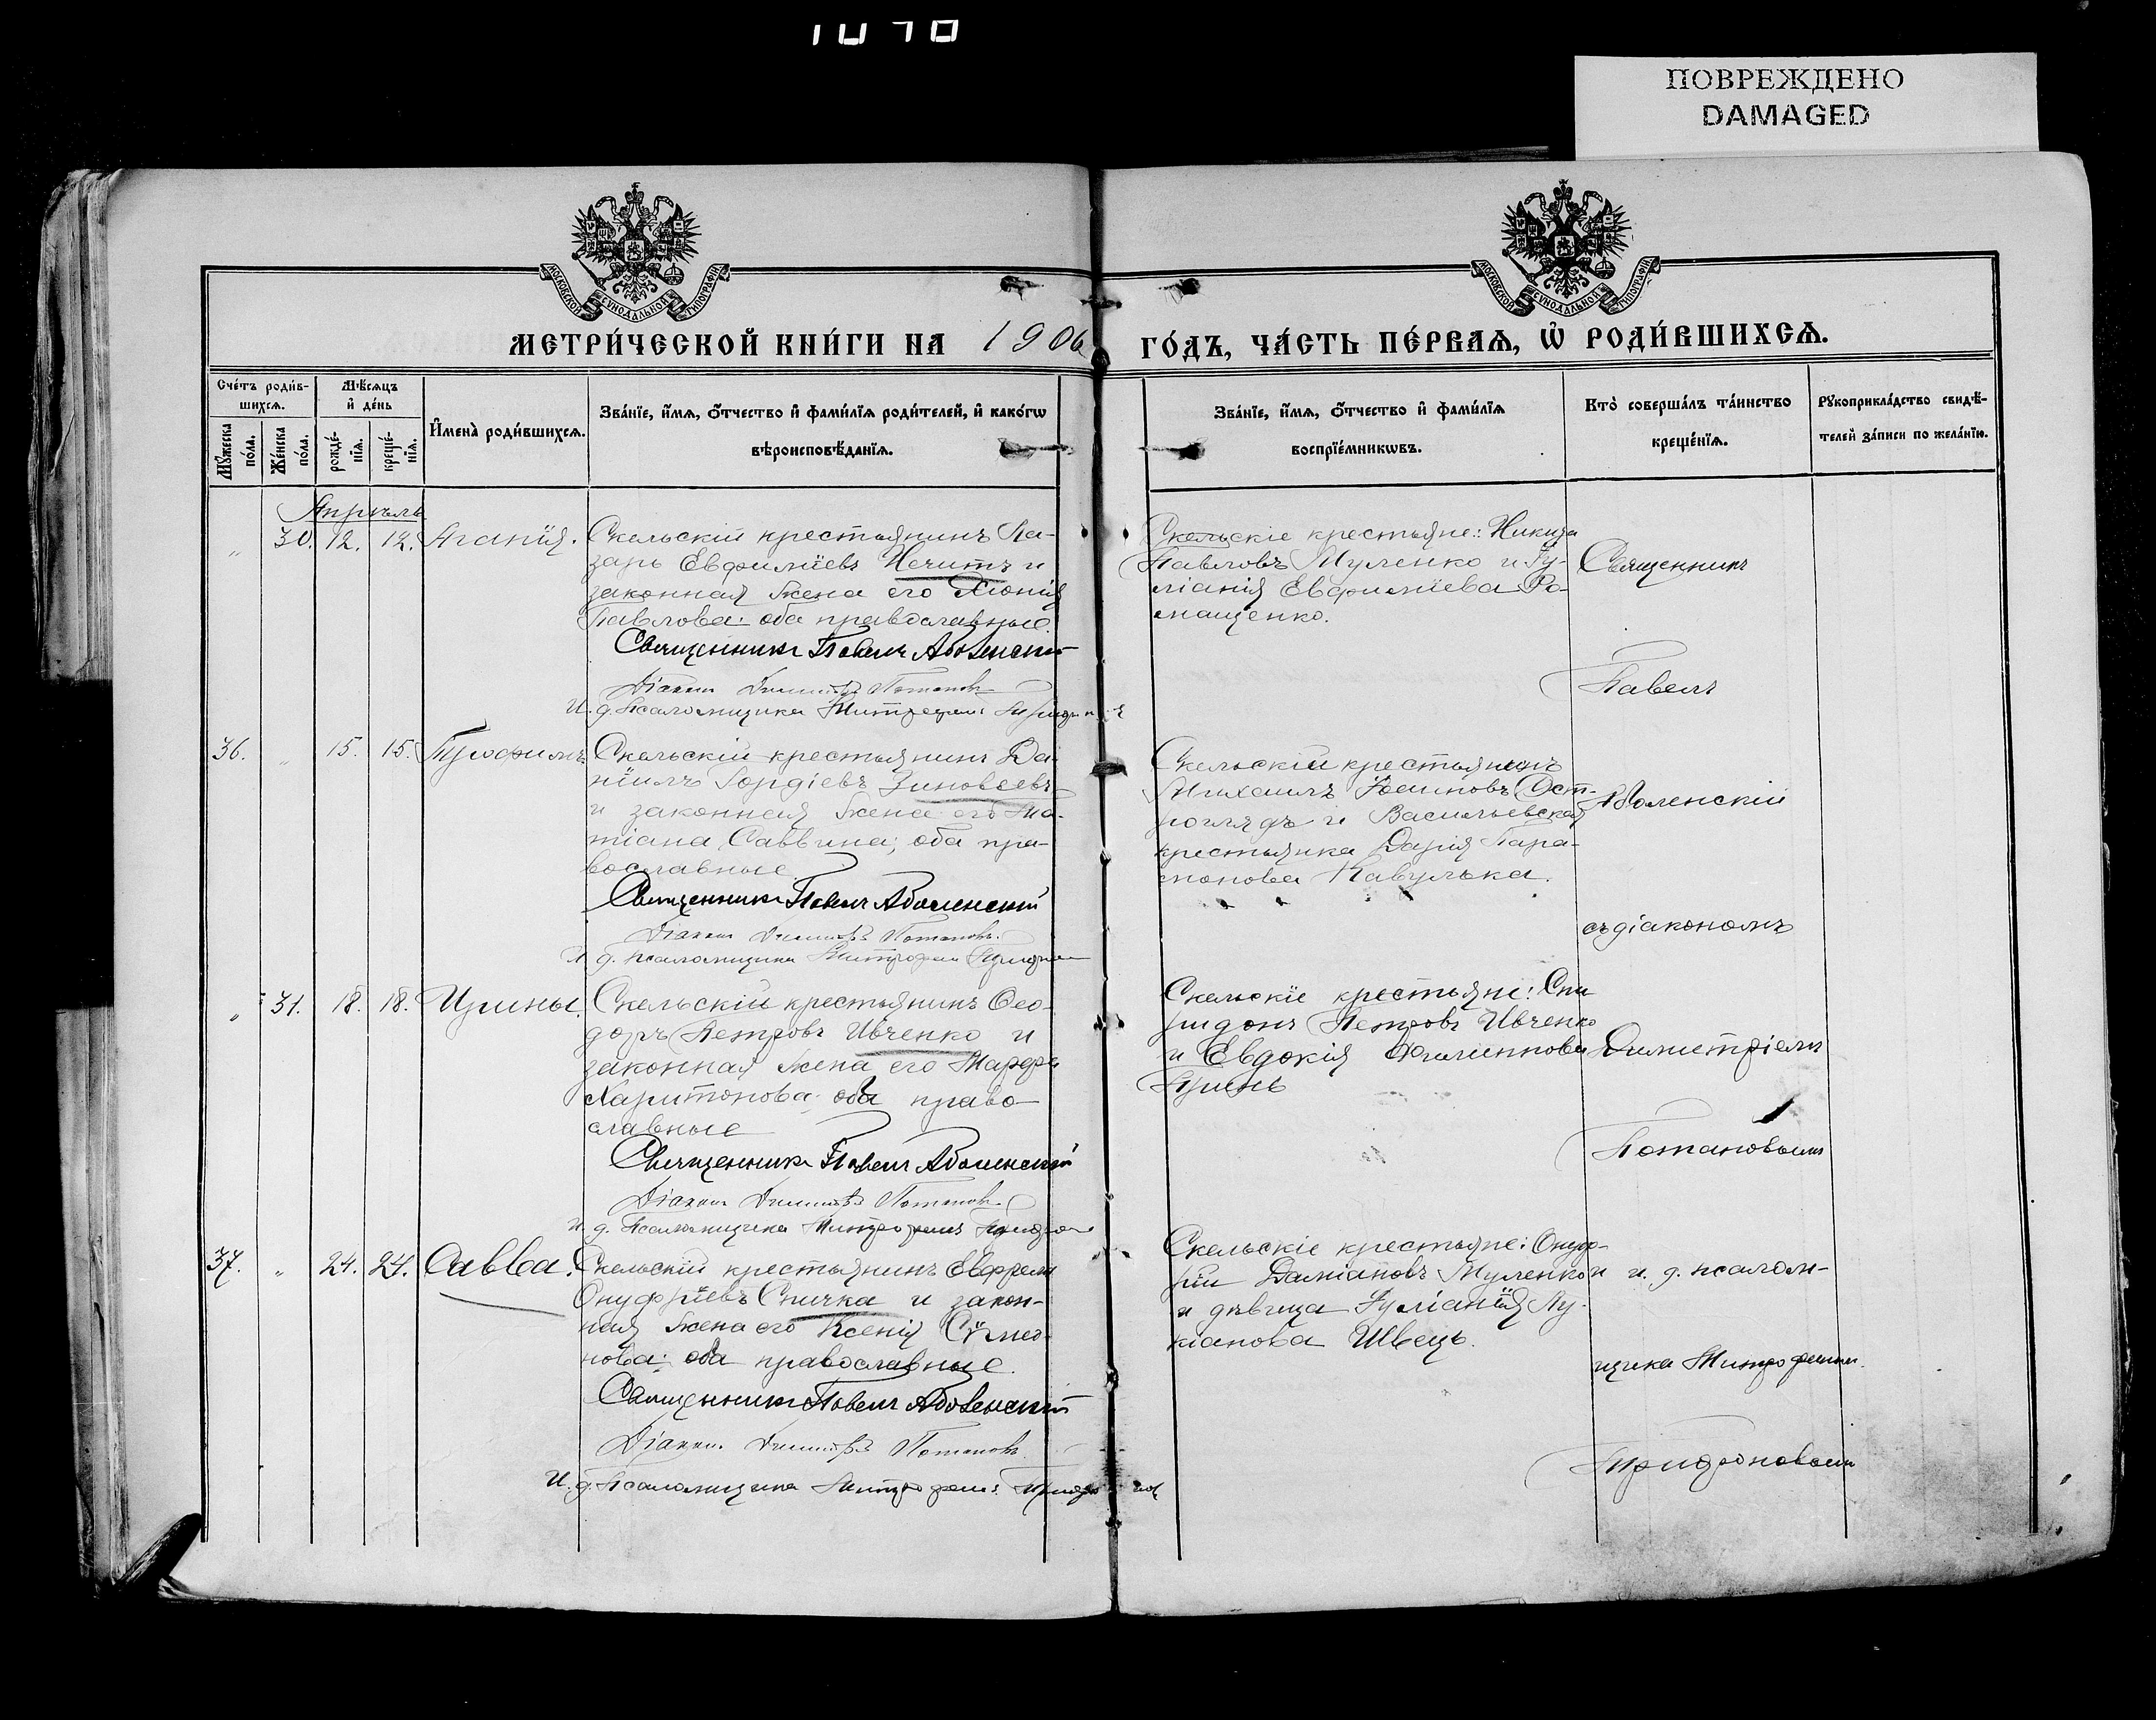 1070
ПОВРЕЖДЕНО
DAMAGED
МОСКОВСКОЙ СѴНОДАЛЬНОЙ ТИПОГРАФІИ
МОСКОВСКОЙ СѴНОДАЛЬНОЙ ТИПОГРАФІИ
МЕТРИ́ЧЕСКОЙ КНИ́ГИ НА 1906
ГО́ДЪ, ЧА́СТЬ ПЕ́РВАѦ, Ѡ҆ РОДИ́ВШИХСѦ.
Сче́тъ роди́в-
шихсѧ.
Мꙋжеска по́ла.
Же́нска по́ла.
Мѣ́сѧцъ
и҆ де́нь
рожде́-
нїѧ.
креще́-
нїѧ.
И҆мена̀ роди́вшихсѧ.
Зва́нїе, и҆́мѧ, ѻ҆́тчество и҆ фами́лїѧ роди́телей, и҆ како́гѡ
вѣроисповѣ́данїѧ.
Зва́нїе, и҆́мѧ, ѻ҆́тчество и҆ фами́лїѧ
воспрїе́мникѡвъ.
Кто̀ соверша́лъ та́инство
креще́нїѧ.
Рꙋкоприкла́дство свидѣ́-
телей за́писи по жела́нїю.
Апрѣль
" 30. 12. 12. Агапія.
Скельскій крестьянинъ Ла-
зарь Евфиміевъ Нечитъ и
законная жена его Хіонія
Павлова: оба православные.
Священникъ Павелъ Аболенскій
Діаконъ Димитрій Потаповъ
И. д. Псаломщика Митрофанъ
Скельскіе крестьяне: Никита
Павловъ Муленко и Іу-
ліанія Евфиміева Ро-
мащенко.
36. " 15. 15. Трофимъ
Скельскій крестьянинъ Да-
ніилъ Гордіевъ Зиновьевъ
и законная жена его Та-
тіана Саввина; оба пра-
вославные.
Священникъ Павелъ Аболенскій
Діаконъ Димитрій Потаповъ
И. д. псаломщика Митрофанъ
Скельскій крестьянинъ
Михаилъ Ост-
роглядъ и Васильевская
крестьянка Дарія Пара-
монова Кавулька.
" 31. 18. 18. Ирины.
Скельскій крестьянинъ Ѳео-
доръ Петровъ Ивченко и
законная жена его Марфа
Харитонова: оба право-
славные
Священникъ Павелъ Аболенскій
Діаконъ Димитрій Потаповъ
И. д. Псаломщика Митрофанъ
Скельскіе крестьяне: Спи
ридонъ Петровъ Ивченко
и Евдокія Филиппова
37. " 24. 24. Савва.
Скельскій крестьянинъ Ефремъ
Онуфріевъ Спичка и закон-
ная жена его Ксенія Сѵмео-
нова: оба православные.
Священникъ Павелъ Аболенскій
Діаконъ Димитрій Потаповъ
И. д. Псаломщика Митрофанъ
Скельскіе крестьяне: Онуф-
рій Даміановъ Муленко
и дѣвица Іуліанія Лу-
кіанова Швецъ.
Священникъ
Павелъ
Аболенскій
съ діакономъ
Димитріемъ
Потаповымъ
и и. д. псалом-
щика Митрофаномъ